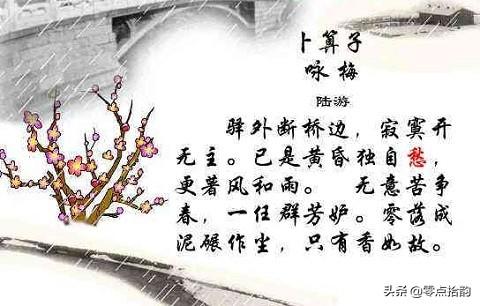 卜算子
咏梅
陆游
驿外断桥边，寂寞开
无主。已是黄昏独自愁，
更著风和雨。 无意苦争
春，一任群芳妒。零落成
泥碾作尘，只有香如故。
头条@零点拾韵